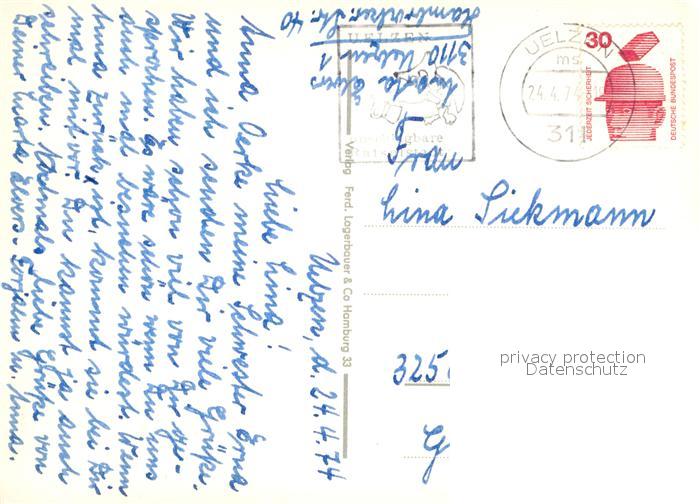 Uelzen, d. 24.4.74
Liebe Lina!
Anna, Gerke meine Schwester Erna
und ich senden Dir viele Grüße.
Wir haben schon viel von Dir ge-
sprochen. Es wäre schön wenn Du uns
auch mal besuchen würdest. Wenn
Anna zurück, kommt sie bei Dir
mal mit vor. Du kannst ja auch
schreiben. Nochmals liebe Grüße von
Deiner Marta Alvers u. Anna.
Marta Alvers
3110 Uelzen 1
Hambrocker Str. 40
Verlag Ferd. Lagerbauer & Co Hamburg 33
UELZEN
UELZEN
ms
24.4.74
311
30
JEDERZEIT SICHERHEIT
DEUTSCHE BUNDESPOST
Frau
Lina Siekmann
325
G
privacy protection
Datenschutz